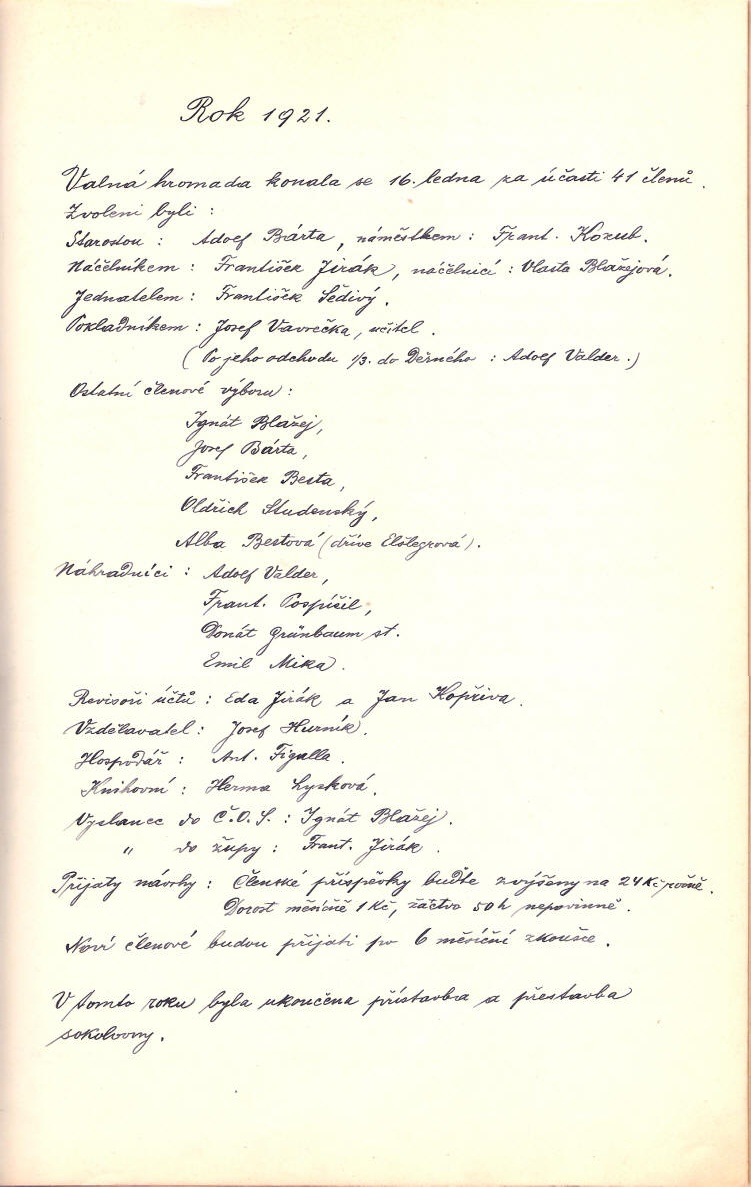 Rok 1921.
Valná hromada konala se 16. ledna za účasti 41 členů.
Zvoleni byli :
Starostou : Adolf Bárta, náměstkem : Frant. Kozub.
Náčelníkem : František Jirák, náčelnicí : Vlasta Blažejová.
Jednatelem : František Šedivý.
Pokladníkem : Josef Vavrečka, učitel.
(Po jeho odchodu 1/3. do Děrného : Adolf Valder.)
Ostatní členové výboru :
Ignát Blažej,
Josef Bárta,
František Besta,
Oldřich Studenský,
Alba Bestová (dříve Elšlegrová).
Náhradníci : Adolf Valder,
Frant. Pospíšil,
Donát Grünbaum st.
Emil Mika.
Revisoři účtů : Eda Jirák a Jan Kopřiva.
Vzdělavatel : Josef Hurník.
Hospodář : Ant. Figalla.
Knihovní : Herma Lysková.
Vyslanec do Č.O.S. : Ignát Blažej.
" do župy : Frant. Jirák.
Přijaty návrhy : Členské příspěvky buďte zvýšeny na 24 Kč ročně.
Dorost měsíčně 1 Kč, žáctvo 50 h nepovinně.
Noví členové budou přijati po 6 měsíční zkoušce.
V tomto roku byla ukončena přístavba a přestavba
sokolovny.